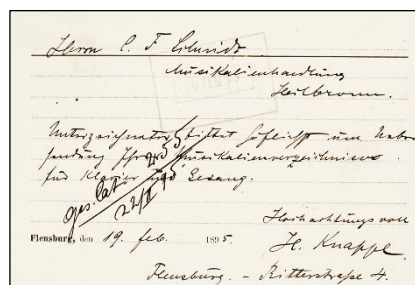 Herrn C. F. Schmidt
Musikalienhandlung
Heilbronn.
Unterzeichneter bittet höflichst um Ueber
sendung Ihres Musikalienverzeichnisses
für Klavier und Gesang.
ges. Cat. 255
22/II 95
Hochachtungsvoll
Flensburg, den 19. Feb. 1895.
H. Knappe
Flensburg. - Ritterstraße 4.